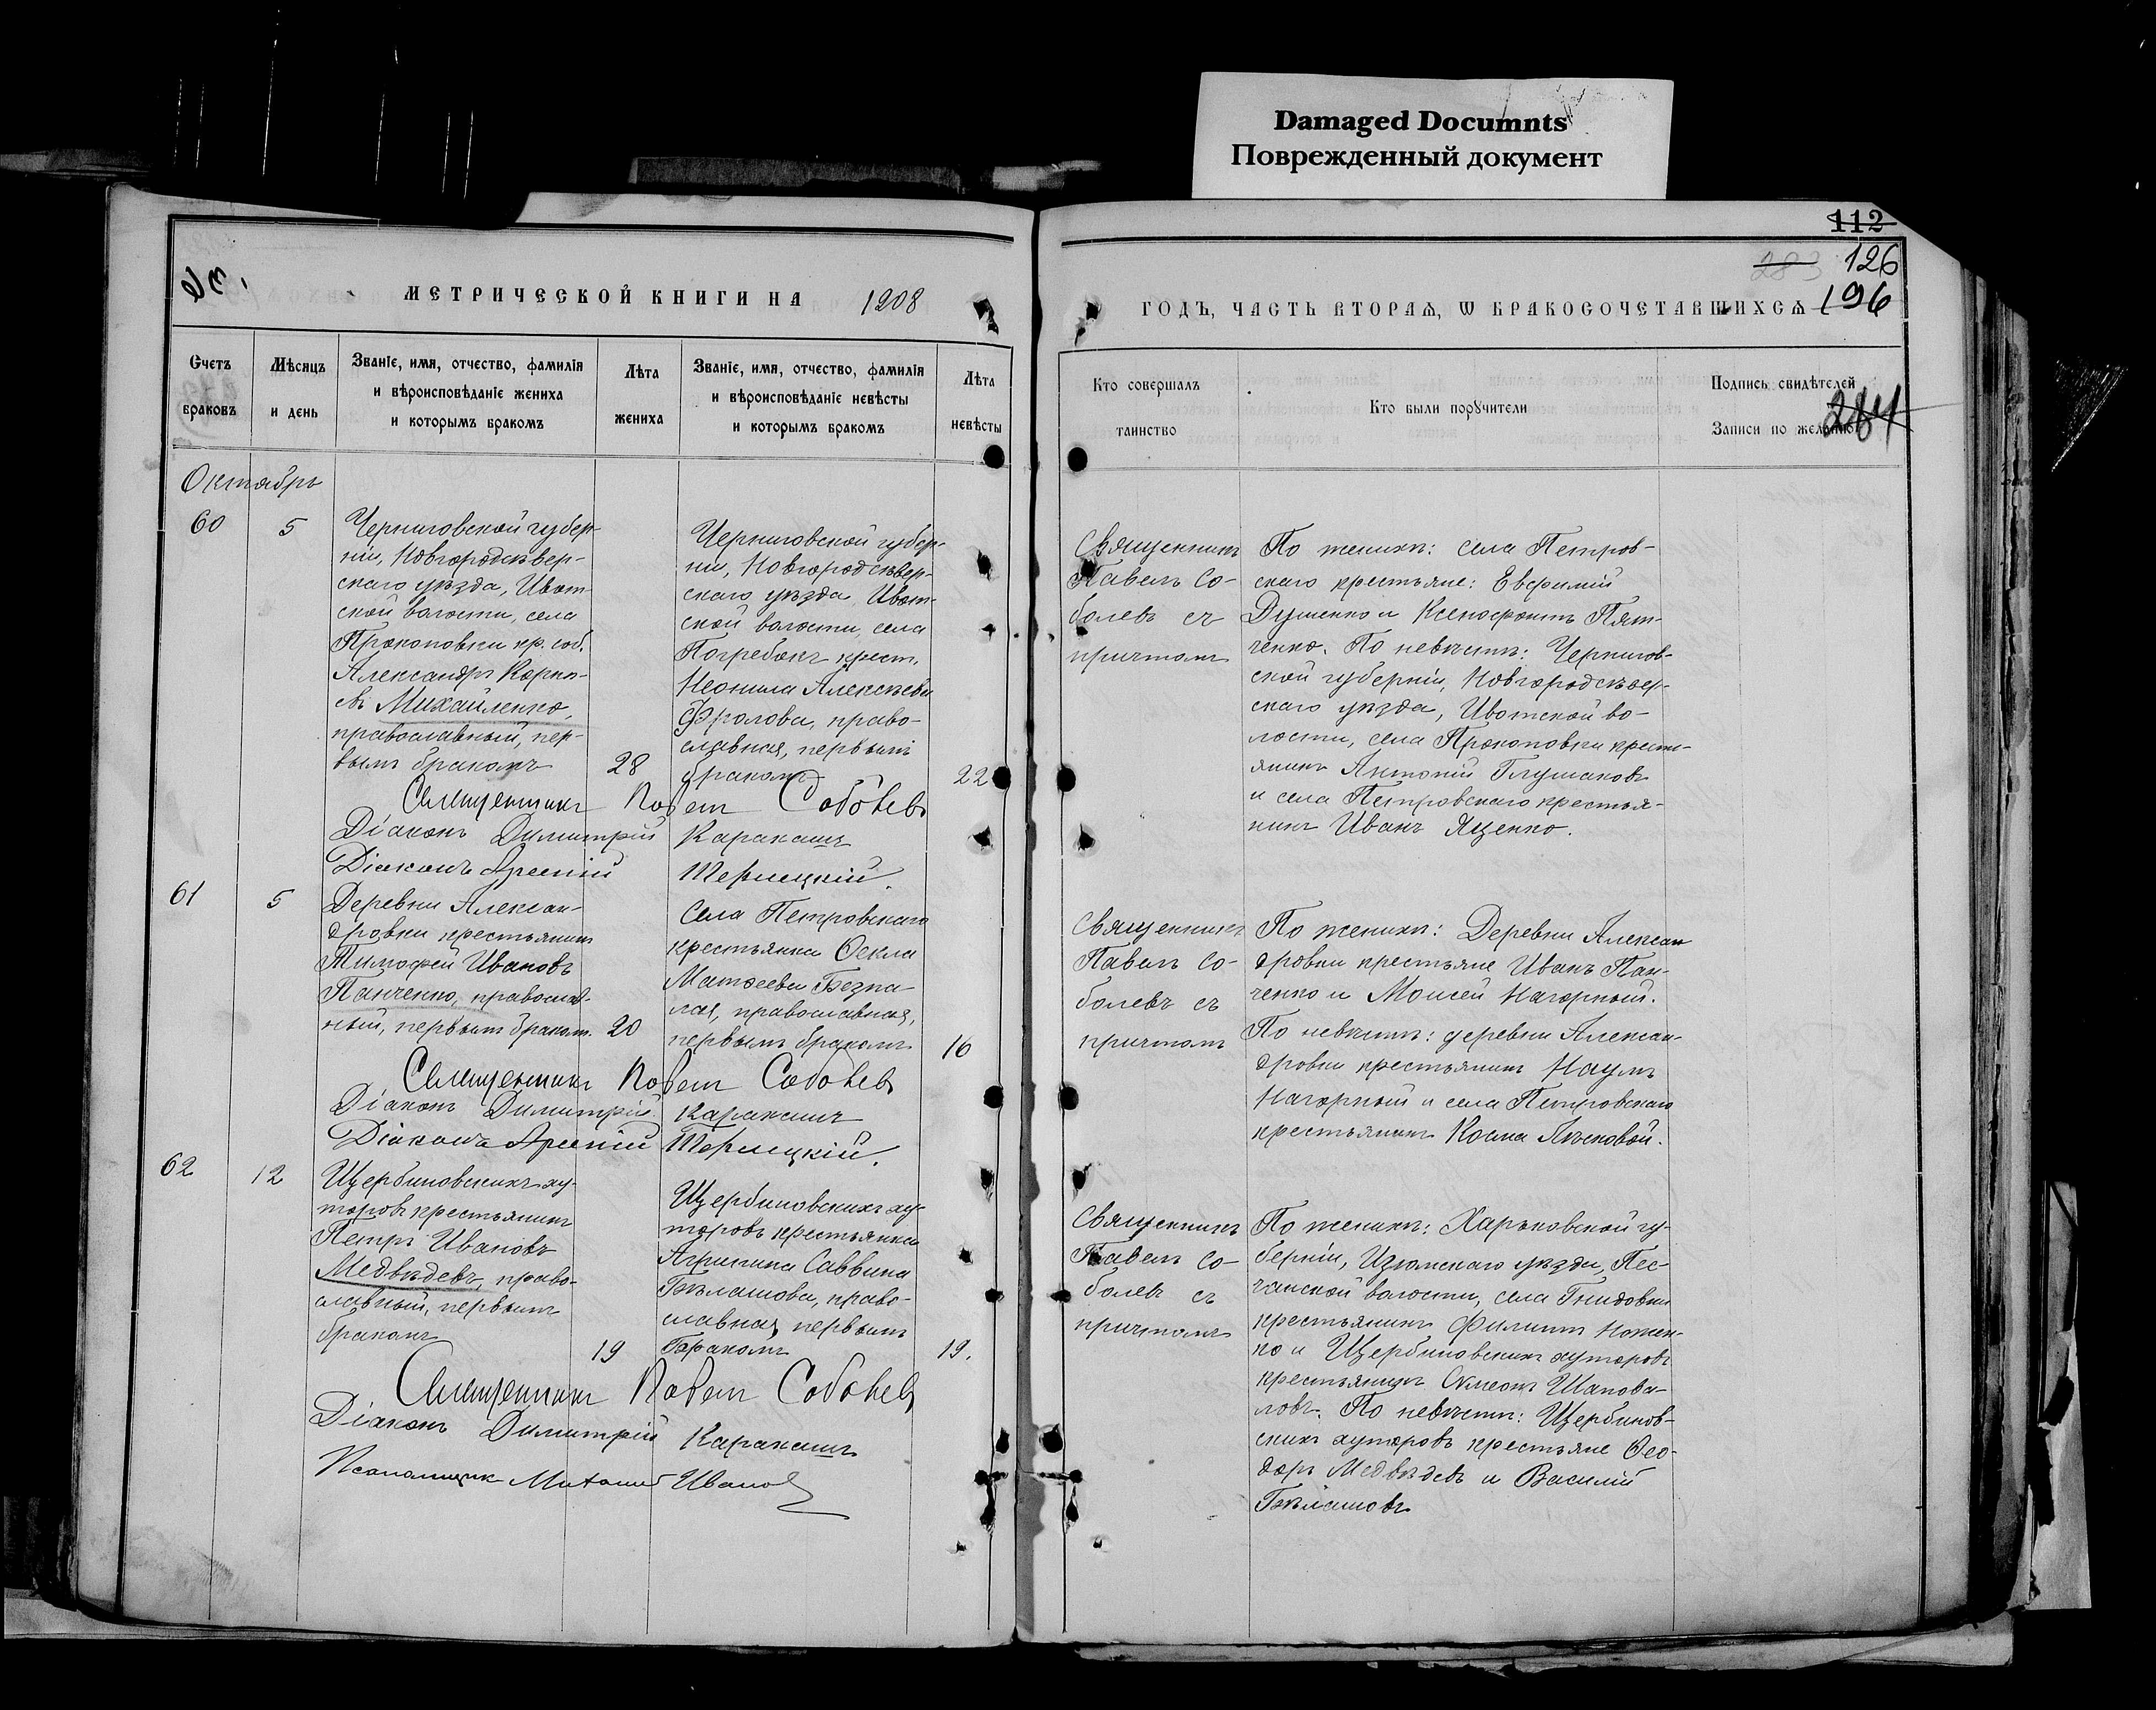 Damaged Documnts
Поврежденный документ
112
283 126
196
МЕТРИЧЕСКОЙ КНИГИ НА 1908
ГОДЪ, ЧАСТЬ ВТОРАѦ, Ѡ БРАКОСОЧЕТАВШИХСѦ
Счетъ
браковъ
Мѣсяцъ
и день
Званіе, имя, отчество, фамилія
и вѣроисповѣданіе жениха
и которымъ бракомъ
Лѣта
жениха
Званіе, имя, отчество, фамилія
и вѣроисповѣданіе невѣсты
и которымъ бракомъ
Лѣта
невѣсты
Кто совершалъ
таинство
Кто были поручители
Подпись свидѣтелей
Записи по желанію
284
Октябрь
60
5
Черниговской губер-
ніи, Новгородсѣвер-
скаго уѣзда, Ивот-
ской волости, села
Прокоповки кр. соб.
Александръ Корни-
евъ Михайленко,
православный, пер-
вымъ бракомъ
28
Черниговской губер-
ніи, Новгородсѣвер-
скаго уѣзда Ивот-
ской волости, села
Погребокъ крест.
Неонила Алексѣева
Фролова, право-
славная, первымъ
бракомъ
22
Священникъ
Павелъ Со-
болевъ съ
причтомъ
По женихѣ: села Петров-
скаго крестьяне: Евфимій
Душенко и Ксенофонтъ Пят-
ченко. По невѣстѣ: Чернигов-
ской губерніи, Новгородсѣвер-
скаго уѣзда, Ивотской во-
лости, села Прокоповки крестья-
янинъ Антоній Глушаковъ
и села Петровскаго крестья-
нинъ Иванъ Яценко.
Священникъ Павелъ Соболевъ
Діаконъ Димитрій Каракашъ
Діаконъ Арсеній Терлецкій.
61
5
Деревни Алексан-
дровки крестьянинъ
Тимофей Ивановъ
Панченко, православ-
ный, первымъ браком.
20
Села Петровскаго
крестьянка Ѳекла
Матѳеева Безпа-
лая, православная,
первымъ бракомъ
16
Священникъ
Павелъ Со-
болевъ съ
причтомъ
По женихѣ: Деревни Алексан
дровки крестьяне Иванъ Пан-
ченко и Моисей Нагорный.
По невѣстѣ: деревни Алексан-
дровки крестьянинъ Наумъ
Нагорный и села Петровскаго
крестьянинъ Косма
Священникъ Павелъ Соболевъ
Діаконъ Димитрій Каракашъ
Діаконъ Арсеній Терлецкій.
62
12
Щербиновскихъ ху-
торовъ крестьянинъ
Петръ Ивановъ
Медвѣдевъ, право-
славный, первымъ
бракомъ
19
Щербиновскихъ ху-
торовъ крестьянка
Агрипина Саввина
Бѣлашова, право-
славная, первымъ
бракомъ
19.
Священникъ
Павелъ Со-
болевъ съ
причтомъ
По женихѣ: Харьковской гу-
берніи, Изюмскаго уѣзда, Пес-
чанской волости, села Гнидовки
крестьянинъ Филиппъ Ножен-
ко и Щербиновскихъ хуторовъ
крестьянинъ Симеонъ Шапова-
ловъ. По невѣстѣ: Щербинов-
скихъ хуторовъ крестьяне Ѳео-
доръ Медвѣдевъ и Василій
Бѣлашовъ
Священникъ Павелъ Соболевъ
Діаконъ Димитрій Каракашъ
Псаломщикъ Ивановъ